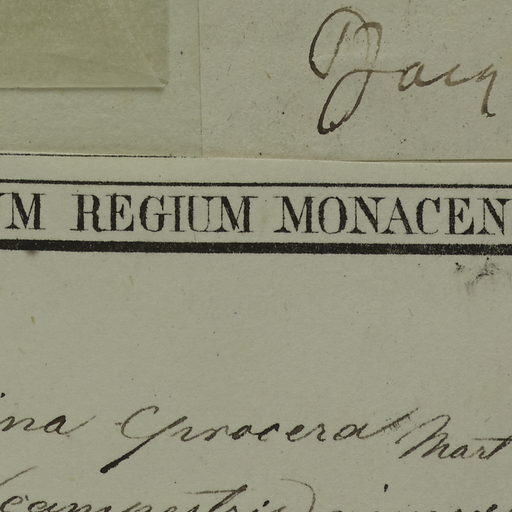 Jacq
UM REGIUM MONACEN
ina procera Mart
(campestris)